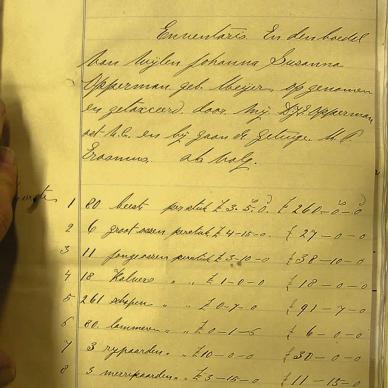 Ennentaris En den boedel
van wijlen Johanna Susanna
Opperman geb. Meijer, opgenomen
en getaxeerd door Mij D.J.E. Opperman
en bij gaan de Getuige M. P.
Erasmus als volg.
1 80 beeste per stuk £ 3-5-0. £ 260-0-0
2 6 groot ossen per stuk £ 4-10-0 £ 27-0-0
3 11 jong ossen per stuk £ 3-10-0 £ 38-10-0
4 18 Kalvers " " £ 1-0-0 £ 18-0-0
5 261 schapen " " £ 0-7-0 £ 91-7-0
6 80 lammers " " £ 0-1-6 £ 6-0-0
7 3 rypaarden " £ 10-0-0 £ 30-0-0
8 3 merriepaarden " £ 3-15-0 £ 11-15-0